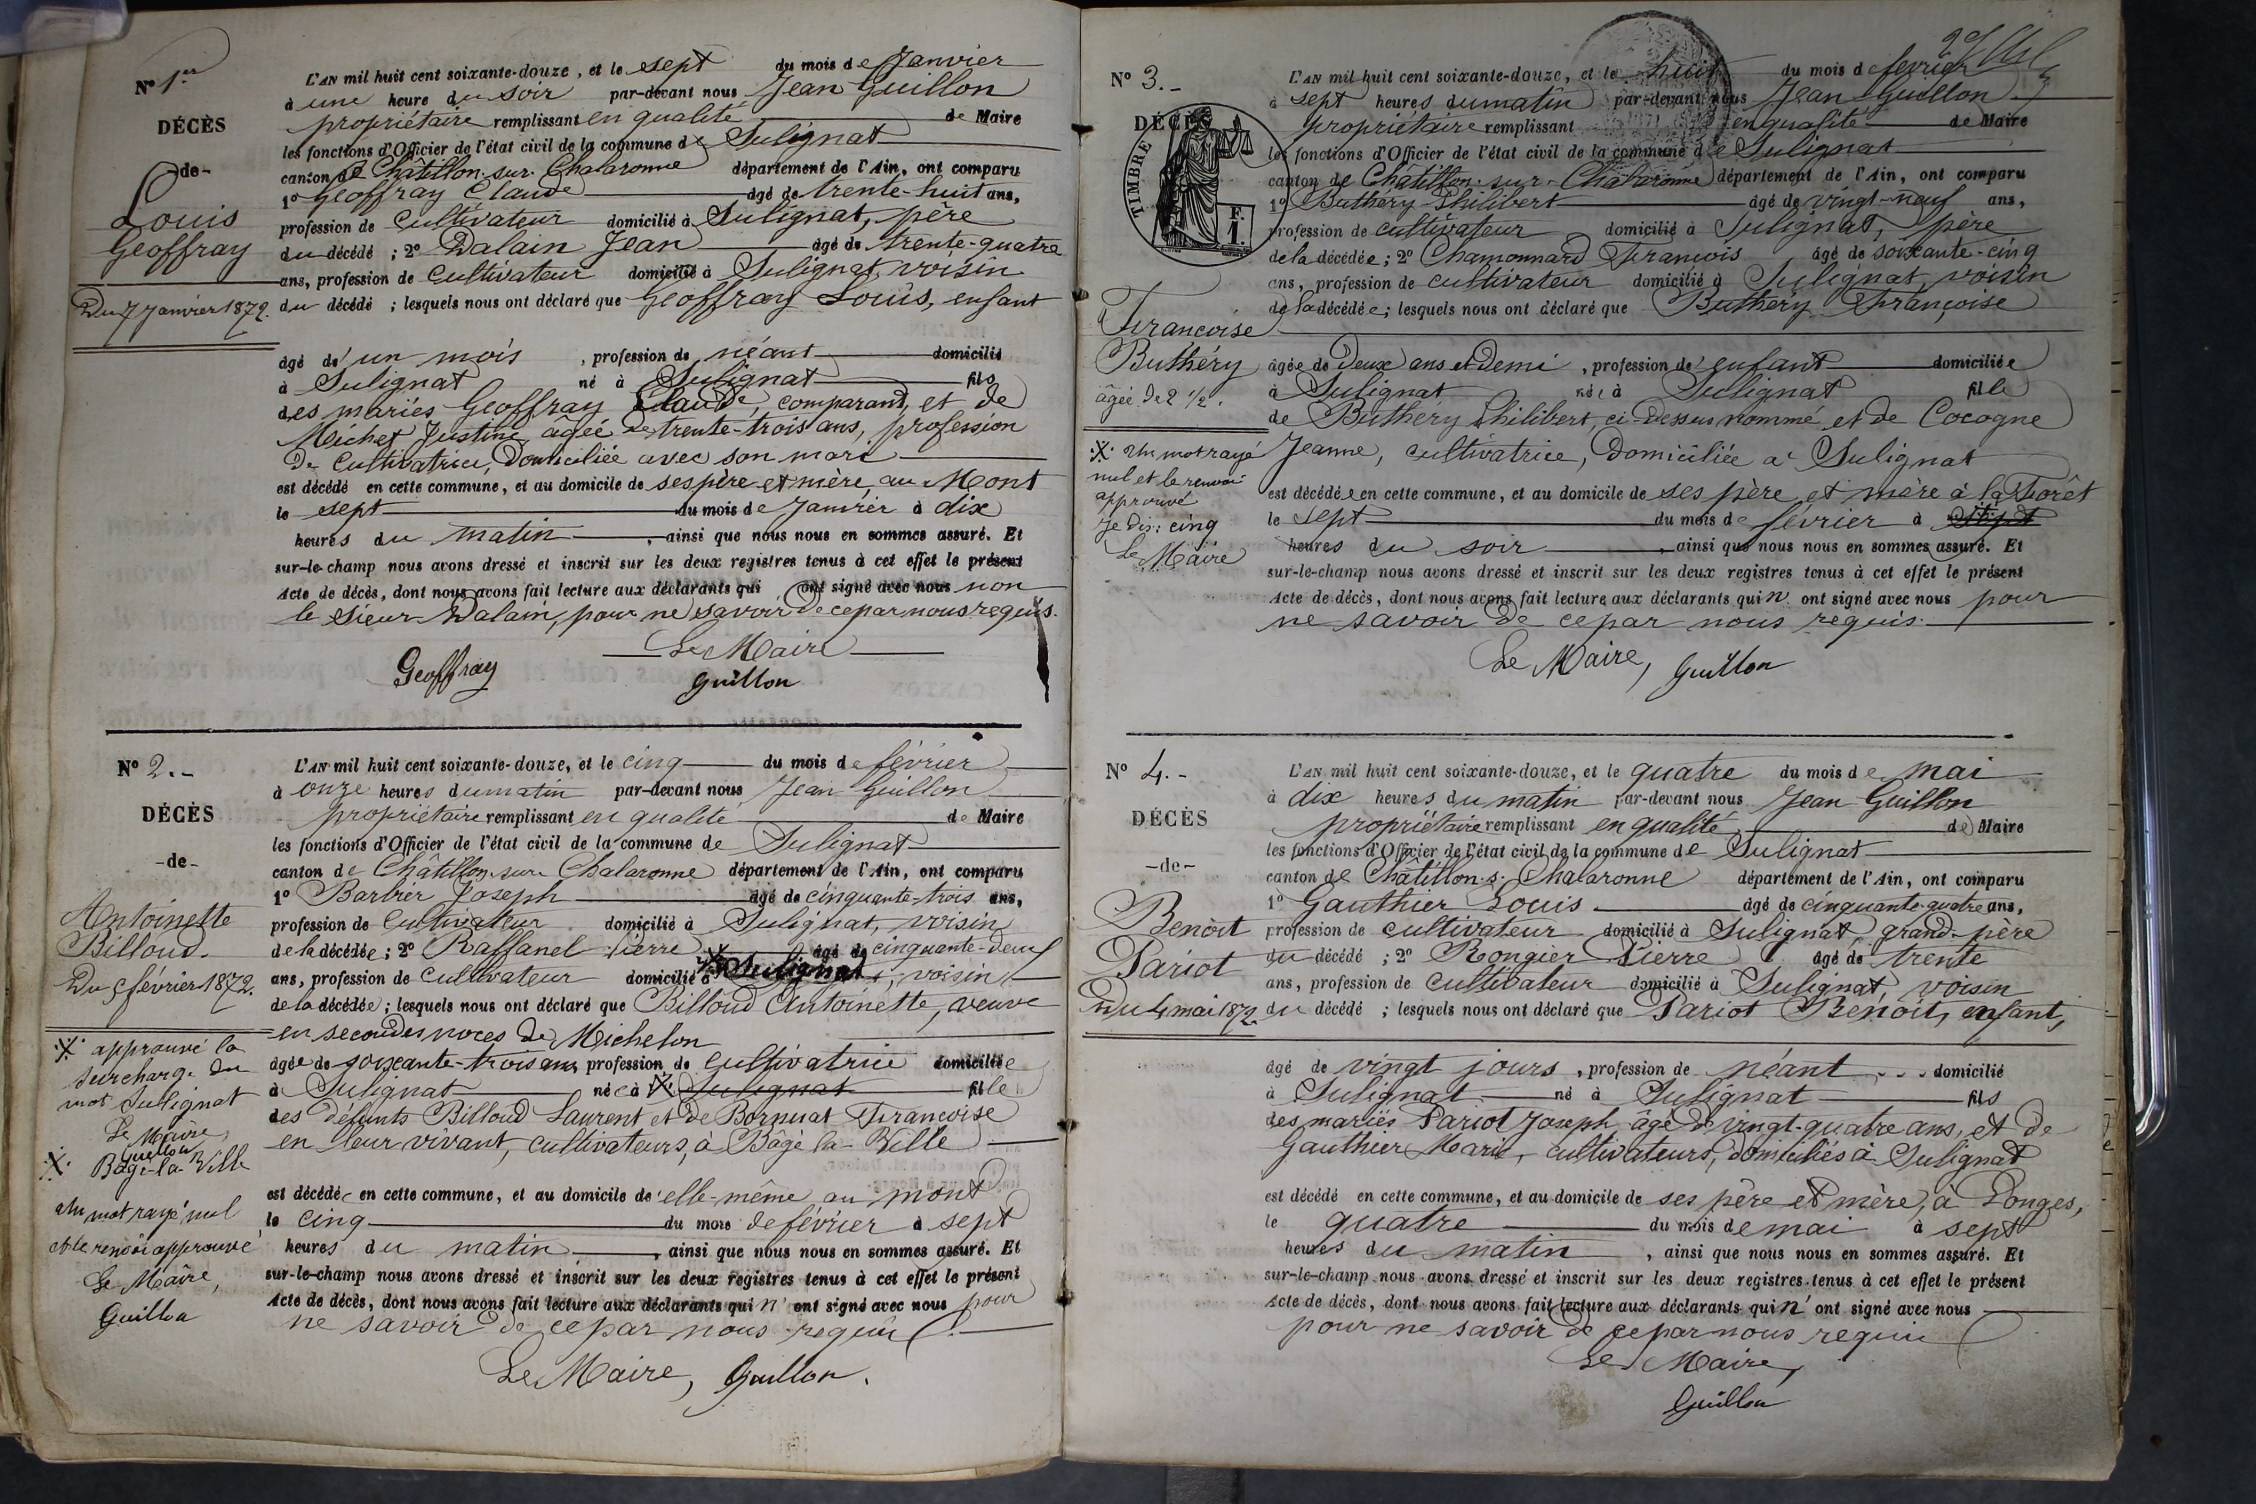 N° 1er
DÉCÈS
de
Louis
Geoffray
Du 7 Janvier 1872.
L'AN mil huit cent soixante-douze, et le sept du mois de Janvier
à une heure du soir par-devant nous Jean Guillon
propriétaire remplissant en qualité de Maire
les fonctions d'Officier de l'état civil de la commune de Sulignat
canton de Châtillon-sur-Chalaronne département de l'Ain, ont comparu
1° Geoffray Claude âgé de trente-huit ans,
profession de cultivateur domicilié à Sulignat, père
du décédé ; 2° Dalain Jean âgé de trente-quatre
ans, profession de cultivateur domicilié à Sulignat, voisin
du décédé ; lesquels nous ont déclaré que Geoffray Louis, enfant
âgé d'un mois, profession de néant domicilié
à Sulignat né à Sulignat fils
des mariés Geoffray Claude, comparant, et de
Michet Justine, âgée de trente-trois ans, profession
de cultivatrice, domiciliée avec son mari
est décédé en cette commune, et au domicile de ses père et mère, au Mont
le sept du mois de Janvier à dix
heures du matin, ainsi que nous nous en sommes assuré. Et
sur-le-champ nous avons dressé et inscrit sur les deux registres tenus à cet effet le présent
Acte de décès, dont nous avons fait lecture aux déclarants qui ont signé avec nous non
le sieur Dalain, pour ne savoir de ce par nous requis.
Le Maire
Geoffray Guillon
N° 2.
DÉCÈS
-de-
Antoinette
Billoud.
Du 5 février 1872.
approuvé la
surcharge du
mot Sulignat
Le Maire,
Guillon
Bâgé-la-Ville
Un mot rayé nul
et le renvoi approuvé
Le Maire,
Guillon
L'AN mil huit cent soixante-douze, et le cinq du mois de février
à onze heures du matin par-devant nous Jean Guillon
propriétaire remplissant en qualité de Maire
les fonctions d'Officier de l'état civil de la commune de Sulignat
canton de Châtillon-sur-Chalaronne département de l'Ain, ont comparu
1° Barbier Joseph âgé de cinquante-trois ans,
profession de cultivateur domicilié à Sulignat, voisin
de la décédée ; 2° Raffanel Pierre âgé de cinquante-deux
ans, profession de cultivateur domicilié à Sulignat, voisin
de la décédée ; lesquels nous ont déclaré que Billoud Antoinette, veuve
en secondes noces de Michelon
âgée de soixante-trois ans, profession de cultivatrice domiciliée
à Sulignat née à Sulignat fille
des défunts Billoud Laurent et de Bornuat Françoise
en leur vivant, cultivateurs, à Bâgé-la-Ville
est décédée en cette commune, et au domicile d'elle-même au mont
le cinq du mois de février à sept
heures du matin, ainsi que nous nous en sommes assuré. Et
sur-le-champ nous avons dressé et inscrit sur les deux registres tenus à cet effet le présent
Acte de décès, dont nous avons fait lecture aux déclarants qui n'ont signé avec nous pour
ne savoir de ce par nous requis.
Le Maire, Guillon.
N° 3.
DÉCÈS
TIMBRE
F.
1.
Françoise
Buthéry
âgée de 2 1/2.
Un mot rayé
nul et le renvoi
approuvé
Je dis : cinq
Le Maire
L'AN mil huit cent soixante-douze, et le huit du mois de février
à sept heures du matin par-devant nous Jean Guillon
propriétaire remplissant en qualité de Maire
les fonctions d'Officier de l'état civil de la commune de Sulignat
canton de Châtillon-sur-Chalaronne département de l'Ain, ont comparu
1° Buthéry Philibert âgé de vingt-neuf ans,
profession de cultivateur domicilié à Sulignat, père
de la décédée ; 2° Chamonnard François âgé de soixante-cinq
ans, profession de cultivateur domicilié à Sulignat, voisin
de la décédée ; lesquels nous ont déclaré que Buthéry Françoise
âgée de deux ans et demi, profession d'enfant domiciliée
à Sulignat née à Sulignat fille
de Buthéry Philibert, ci-dessus nommé, et de Cocogne
Jeanne, cultivatrice, domiciliée à Sulignat
est décédée en cette commune, et au domicile de ses père et mère à la Forêt
le sept du mois de février à sept
heures du soir, ainsi que nous nous en sommes assuré. Et
sur-le-champ nous avons dressé et inscrit sur les deux registres tenus à cet effet le présent
Acte de décès, dont nous avons fait lecture aux déclarants qui n'ont signé avec nous pour
ne savoir de ce par nous requis.
Le Maire, Guillon
N° 4.
DÉCÈS
-de-
Benoît
Pariot
Du 4 mai 1872.
L'AN mil huit cent soixante-douze, et le quatre du mois de mai
à dix heures du matin par-devant nous Jean Guillon
propriétaire remplissant en qualité de Maire
les fonctions d'Officier de l'état civil de la commune de Sulignat
canton de Châtillon-s.-Chalaronne département de l'Ain, ont comparu
1° Gauthier Louis âgé de cinquante-quatre ans,
profession de cultivateur domicilié à Sulignat, grand-père
du décédé ; 2° Rongier Pierre âgé de trente
ans, profession de cultivateur domicilié à Sulignat, voisin
du décédé ; lesquels nous ont déclaré que Pariot Benoît, enfant,
âgé de vingt jours, profession de néant domicilié
à Sulignat né à Sulignat fils
des mariés Pariot Joseph, âgé de vingt-quatre ans, et de
Gauthier Marie, cultivateurs, domiciliés à Sulignat
est décédé en cette commune, et au domicile de ses père et mère, à Longes,
le quatre du mois de mai à sept
heures du matin, ainsi que nous nous en sommes assuré. Et
sur-le-champ nous avons dressé et inscrit sur les deux registres tenus à cet effet le présent
Acte de décès, dont nous avons fait lecture aux déclarants qui n'ont signé avec nous
pour ne savoir de ce par nous requis
Le Maire,
Guillon